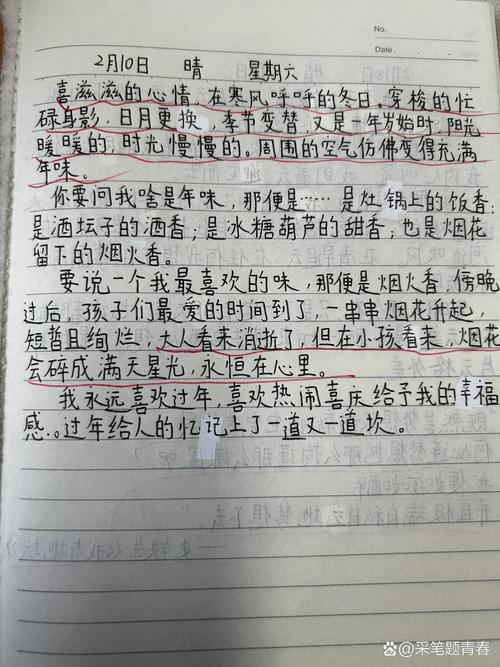 No.
Date.
2月10日 晴 星期六
喜滋滋的心情,在寒风呼呼的冬日。穿梭的忙
碌身影,日月更换,季节变替,又是一年岁始时,阳光
暖暖的,时光慢慢的。周围的空气仿佛变得充满
年味。
你要问我啥是年味,那便是……是灶锅上的饭香;
是酒坛子的酒香;是冰糖葫芦的甜香;也是烟花
留下的烟火香。
要说一个我最喜欢的味,那便是烟火香,傍晚
过后,孩子们最爱的时间到了,一串串烟花升起,
短暂且绚烂,大人看来消逝了,但在小孩看来,烟花
会碎成满天星光,永恒在心里。
我永远喜欢过年,喜欢热闹喜庆给予我的幸福
感。过年给人的忆记上了一道又一道坎。
@采笔题青春